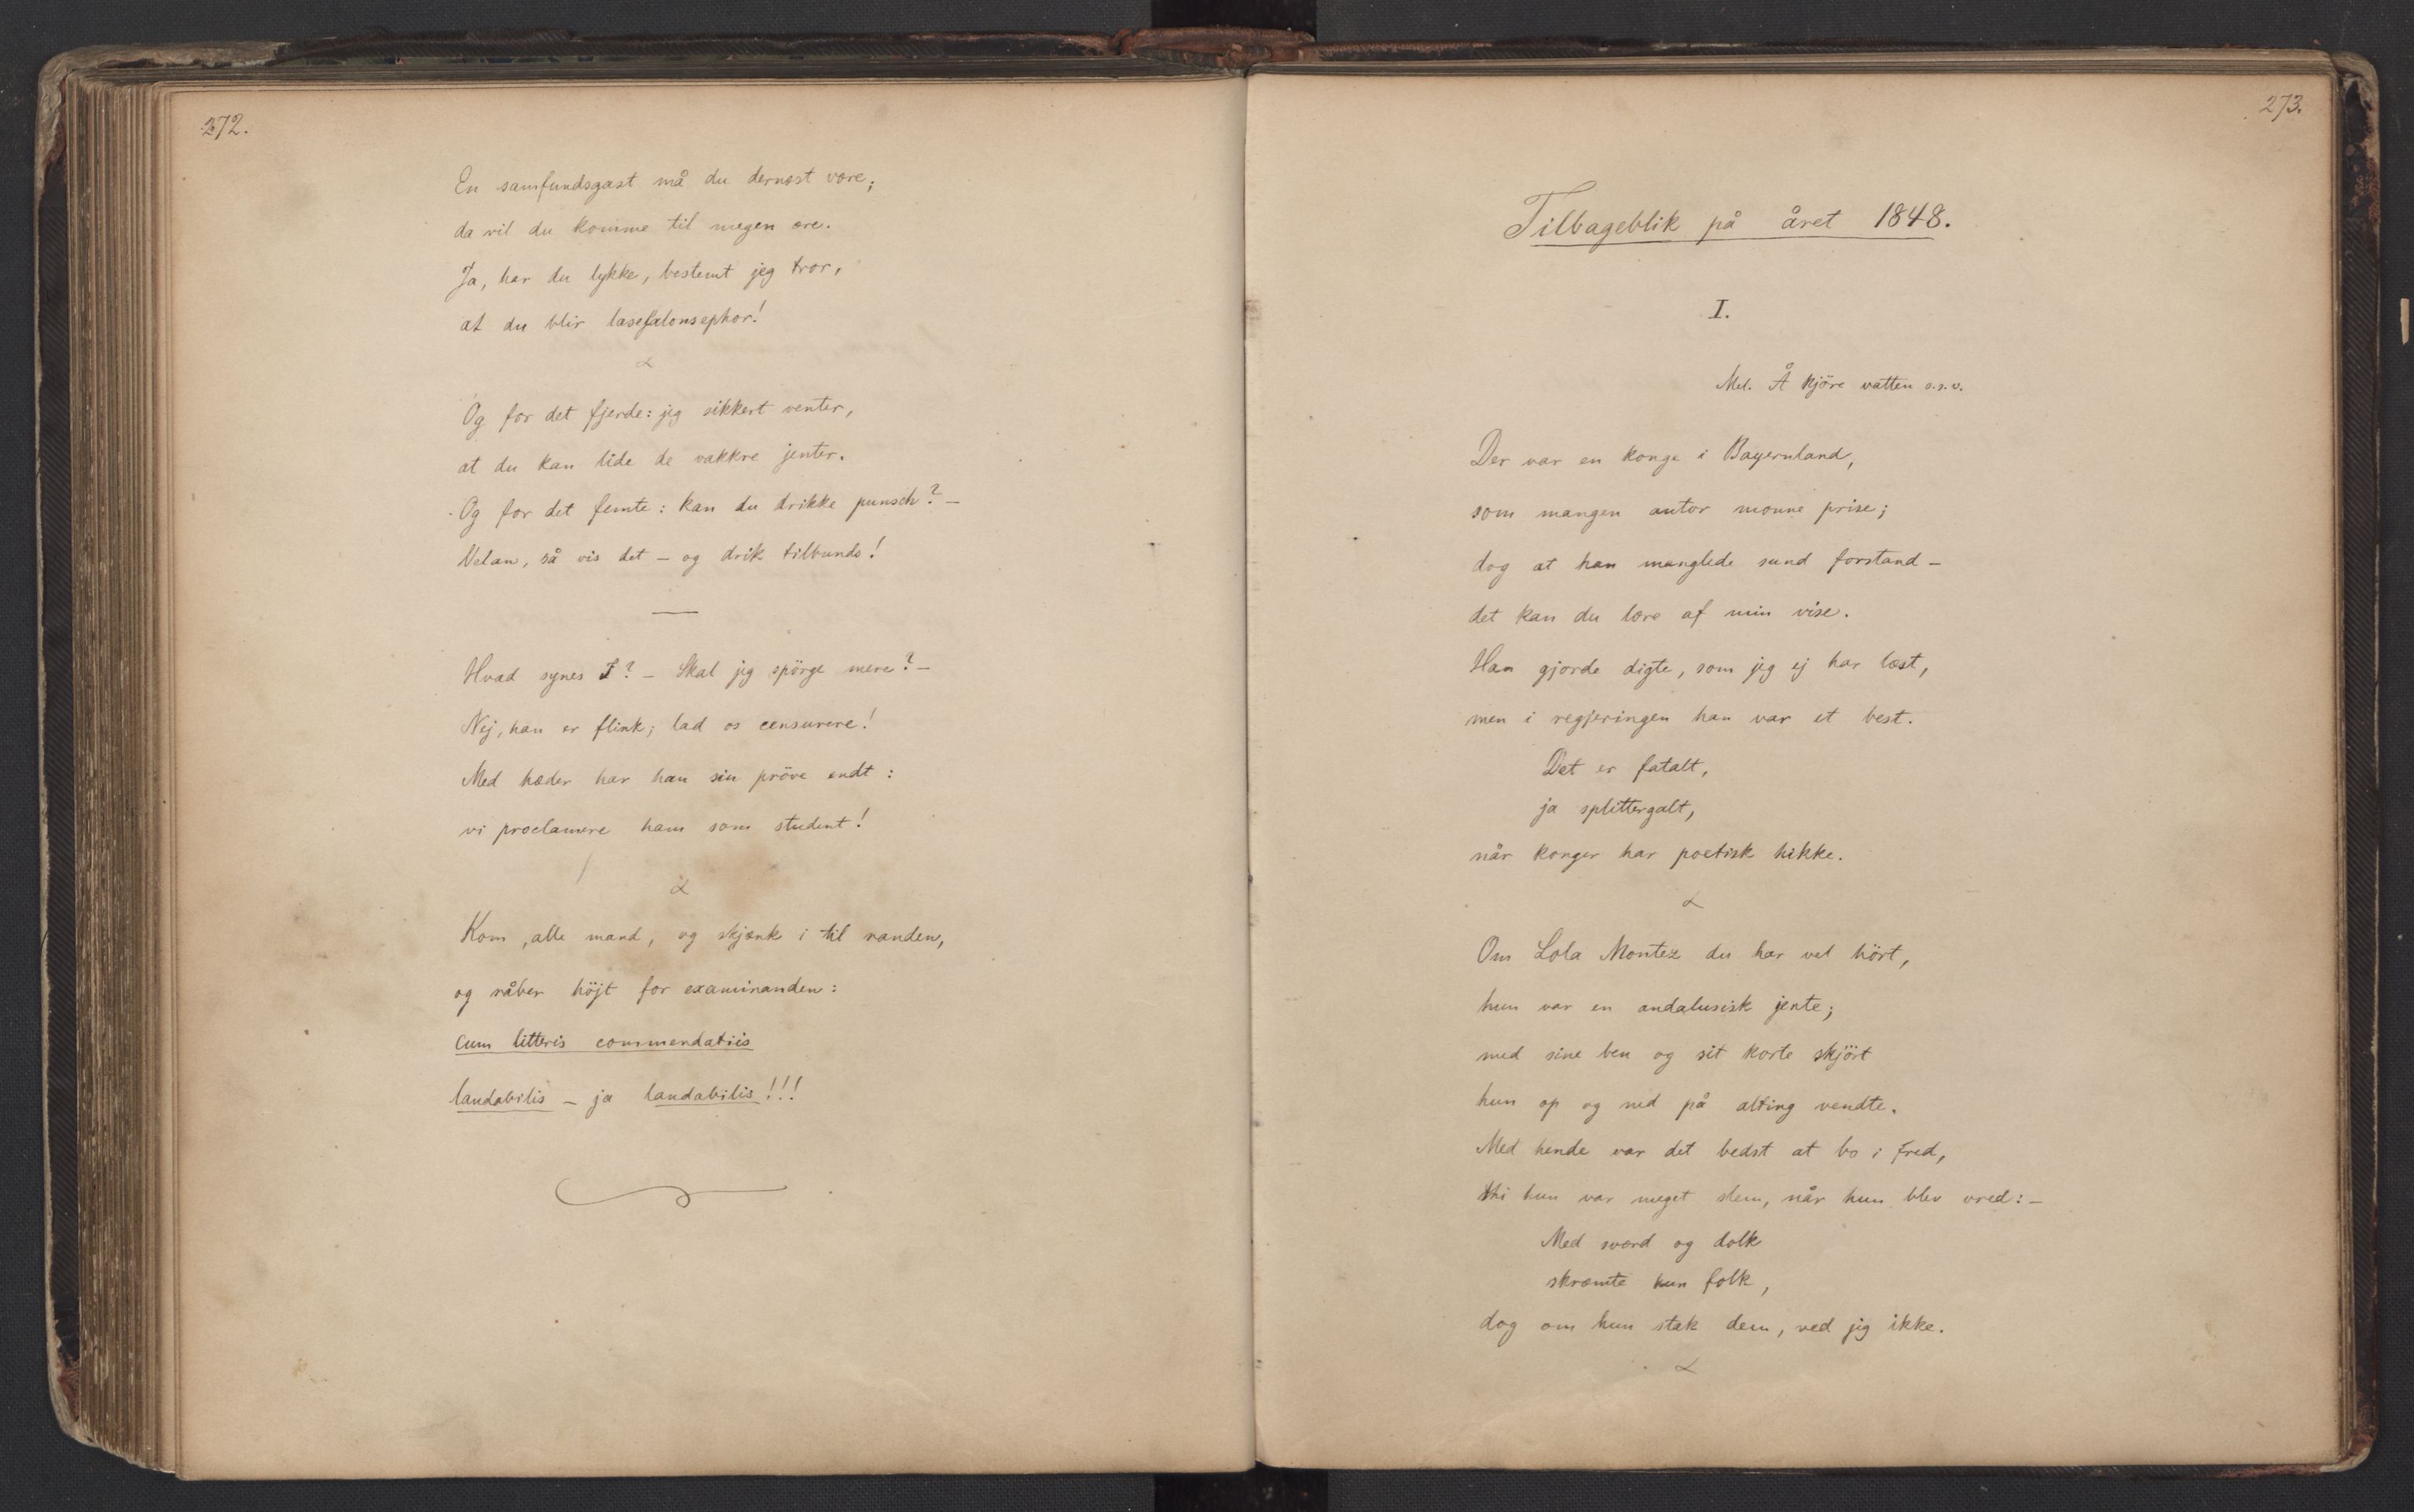 272.
En samfundsgast må du dernæst være;
da vil du komme til megen ære.
Ja, har du lykke, bestemt jeg tror,
at du blir læsesalonsephor!
Og for det fjerde: jeg sikkert venter,
at du kan lide de vakkre jenter.
Og for det femte: kan du drikke punsch? –
Velan, så vis det – og drik tilbunds!
Hvad synes I? – Skal jeg spörge mere? –
Nej, han er flink; lad os censurere!
Med hæder har han sin pröve endt:
vi proclamere ham som student!
Kom, alle mand, og skjænk i til randen,
og råber höjt for examinanden:
cum litteris commendatiis
laudabilis – ja laudabilis!!!
273.
Tilbageblik på året 1848.
I.
Mel. Å kjöre vatten o.s.v.
Der var en konge i Bayernland,
som mangen autor monne prise;
dog at han manglede sund forstand –
det kan du lære af min vise.
Han gjorde digte, som jeg ej har læst,
men i regjeringen han var et best.
Det er fatalt,
ja splittergalt,
når konger har poetisk hikke.
Om Lola Montez du har vel hört,
hun var en andalusisk jente;
med sine ben og sit korte skjört
hun op og ned på alting vendte.
Med hende var det bedst at bo i fred,
thi hun var meget slem, når hun blev vred: –
Med sværd og dolk
skræmte hun folk,
dog om hun stak dem, ved jig ikke.